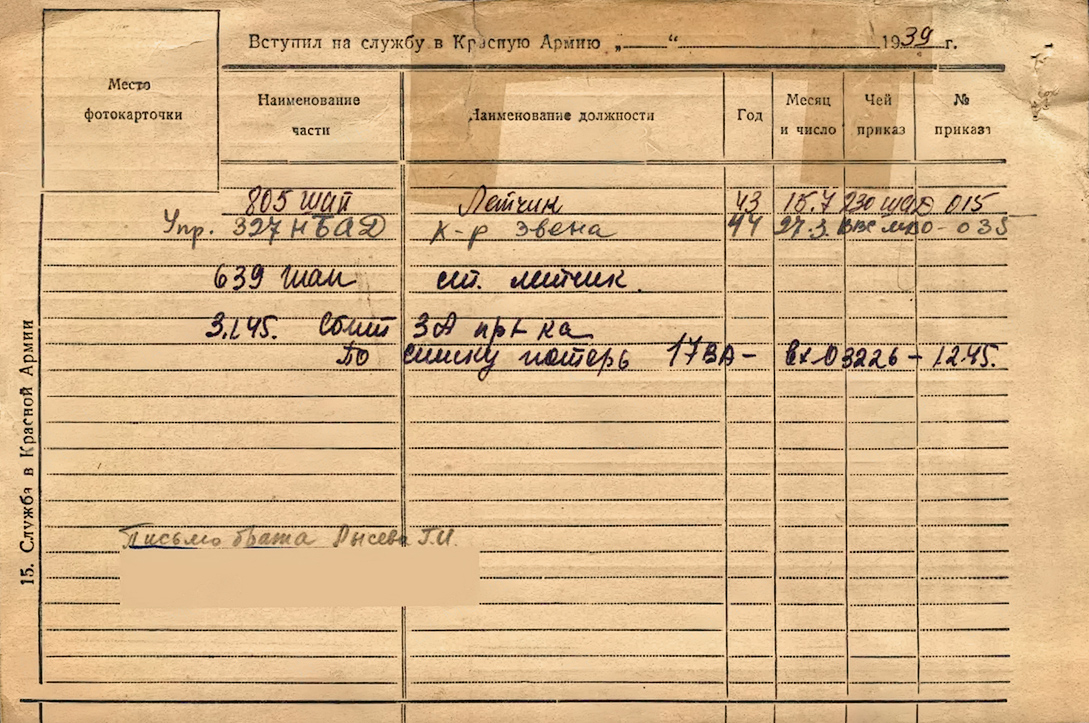 Вступил на службу в Красную Армию „ “ 1939 г.
Место
фотокарточки
Наименование
части
Наименование должности
Год
Месяц
и число
Чей
приказ
№
приказа
805 шап Летчик 43 15.7 230 шад 015
Упр. 327 НБАД к-р звена 44 27.3. ВВС 035
639 шап ст. летчик.
3.1.45. Сбит ЗА пр-ка
По списку потерь 17ВА- вх-03226- 1245.
15. Служба в Красной Армии
Письмо брата Рысева Г.И.